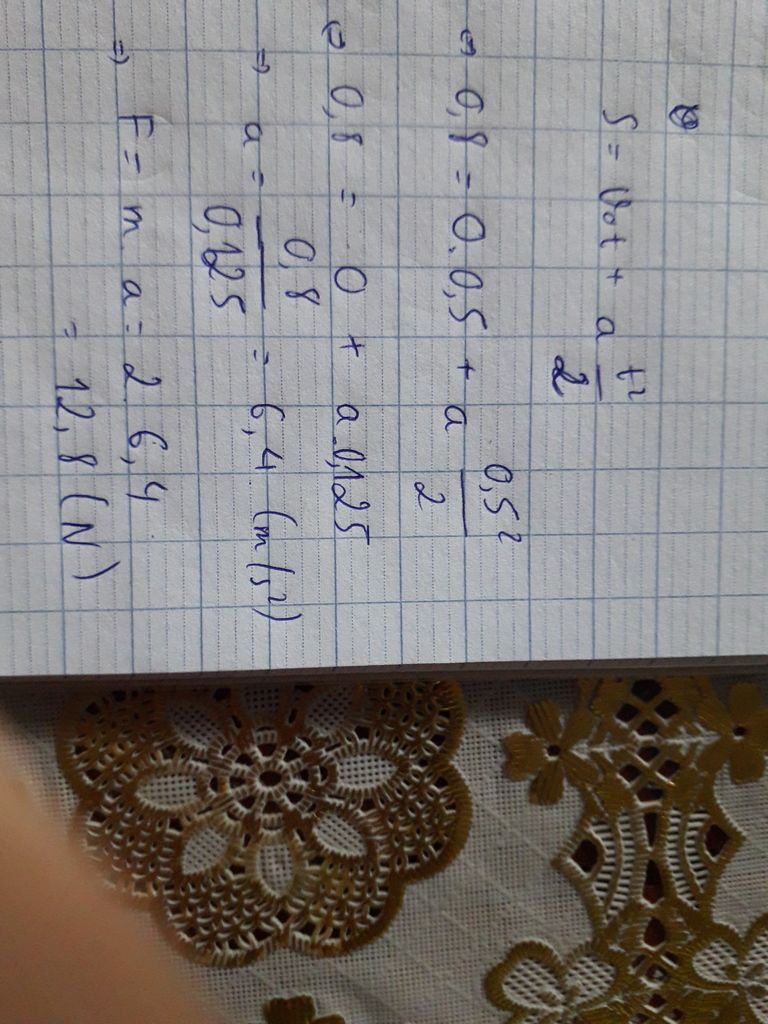 S = v₀t + a t²/2
⇔ 0,8 = 0.0,5 + a 0,5²/2
⇔ 0,8 = 0 + a.0,125
⇒ a = 0,8/0,125 = 6,4 (m/s²)
⇒ F = m.a = 2.6,4
= 12,8 (N)